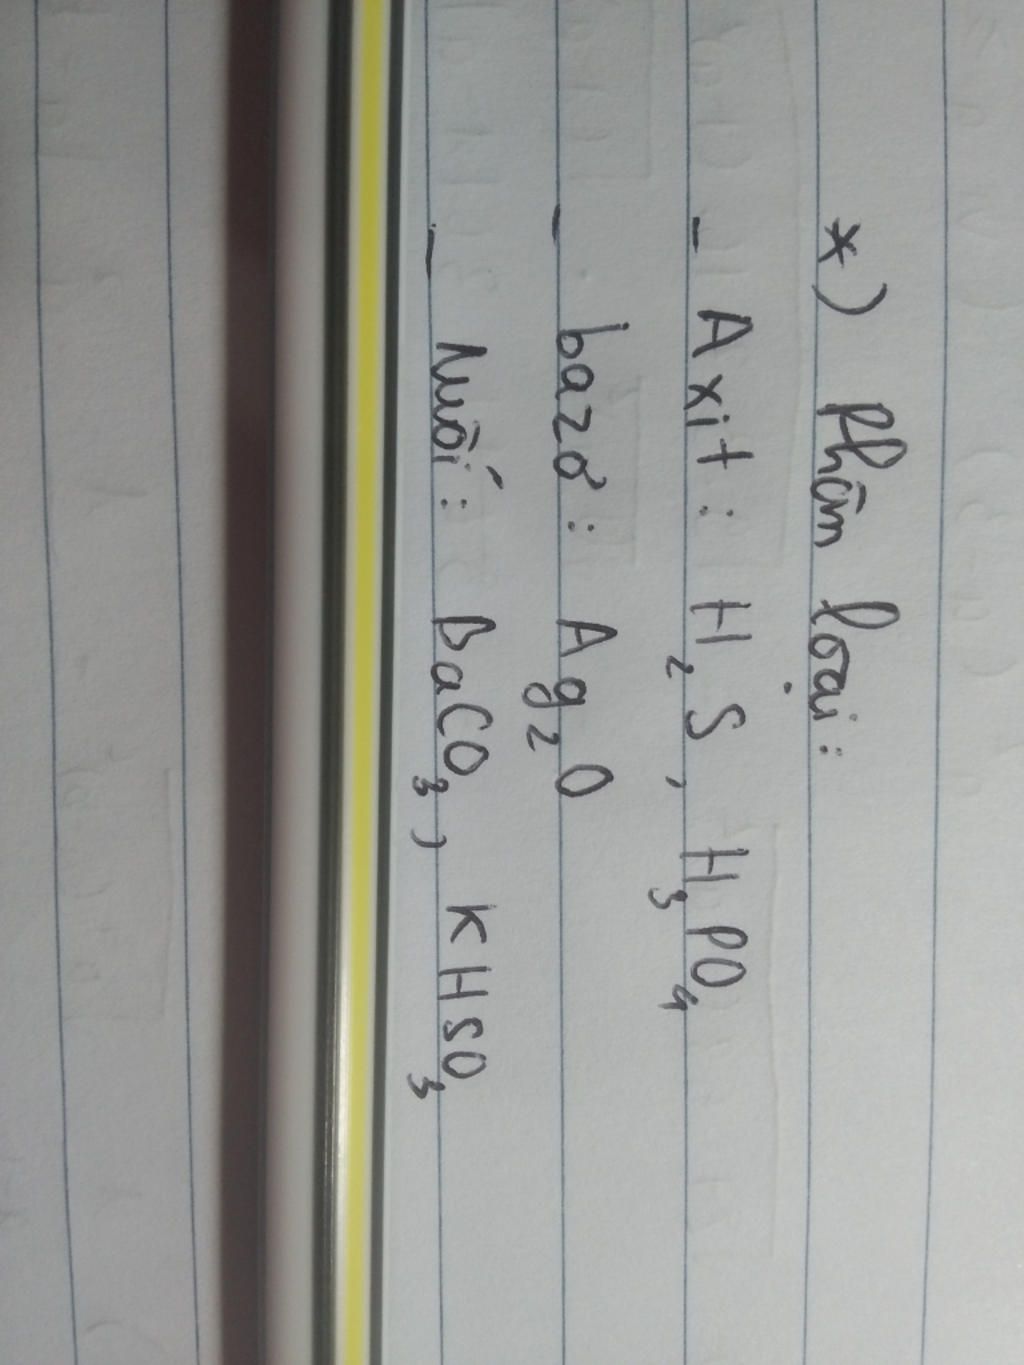 *) Phân loại:
- Axit: H₂S, H₃PO₄
- bazơ: Ag₂O
- Muối: BaCO₃, KHSO₃